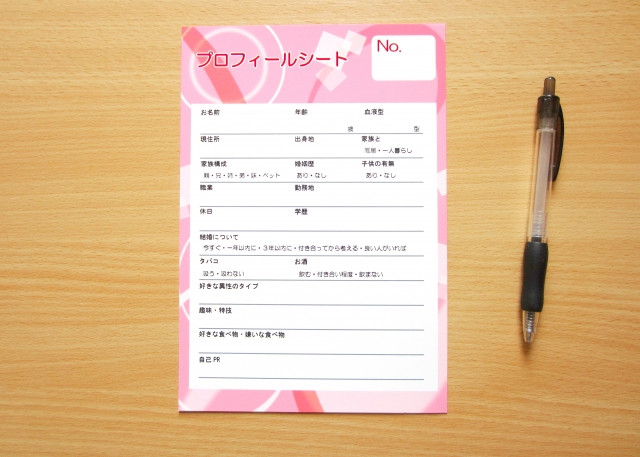 No.
プロフィールシート
お名前 年齢 血液型
歳 型
現住所 出身地 家族と
同居・一人暮らし
家族構成 婚姻歴 子供の有無
親・兄・姉・弟・妹・ペット あり・なし あり・なし
職業 勤務地
休日 学歴
結婚について
今すぐ・一年以内に・3年以内に・付き合ってから考える・良い人がいれば
タバコ お酒
吸う・吸わない 飲む・付き合い程度・飲まない
好きな異性のタイプ
趣味・特技
好きな食べ物・嫌いな食べ物
自己PR